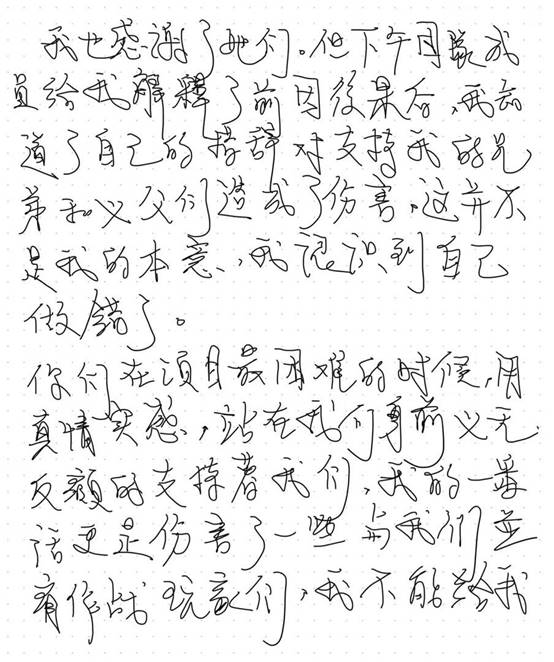 我也感謝了她们。但下午团隊成
員给我解釋了前因後果后,我知
道了自己的措辞对支持我的兄
弟和义父们造成了伤害,这并不
是我的本意,我認识到自己
做錯了。
你们在项目最困难的时候,用
真情实感,站在我们身前义无
反顾的支持着我们,我的一番
话更是伤害了一些与我们並
肩作战玩家们,我不能给我